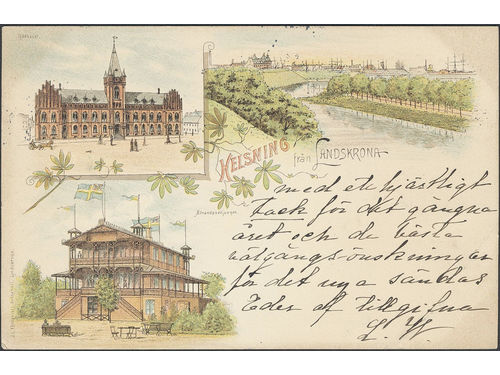 Rådhuset.
HELSNING
från LANDSKRONA
Strandpaviljongen
med ett hjärtligt
tack för det gångna
året och de bästa
välgångsönskningar
för det nya sändas
Eder af tillgifna
L. W.